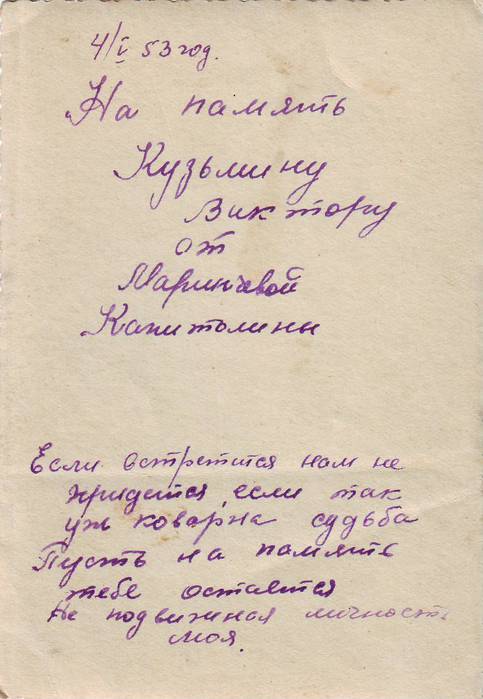 4/V 53 год.
На память
Кузьмину
Виктору
от
Маринчевой
Капитолины
Если встретится нам не
придется, если так
уж коварна судьба
Пусть на память
тебе остается
Не подвижная личность
моя.